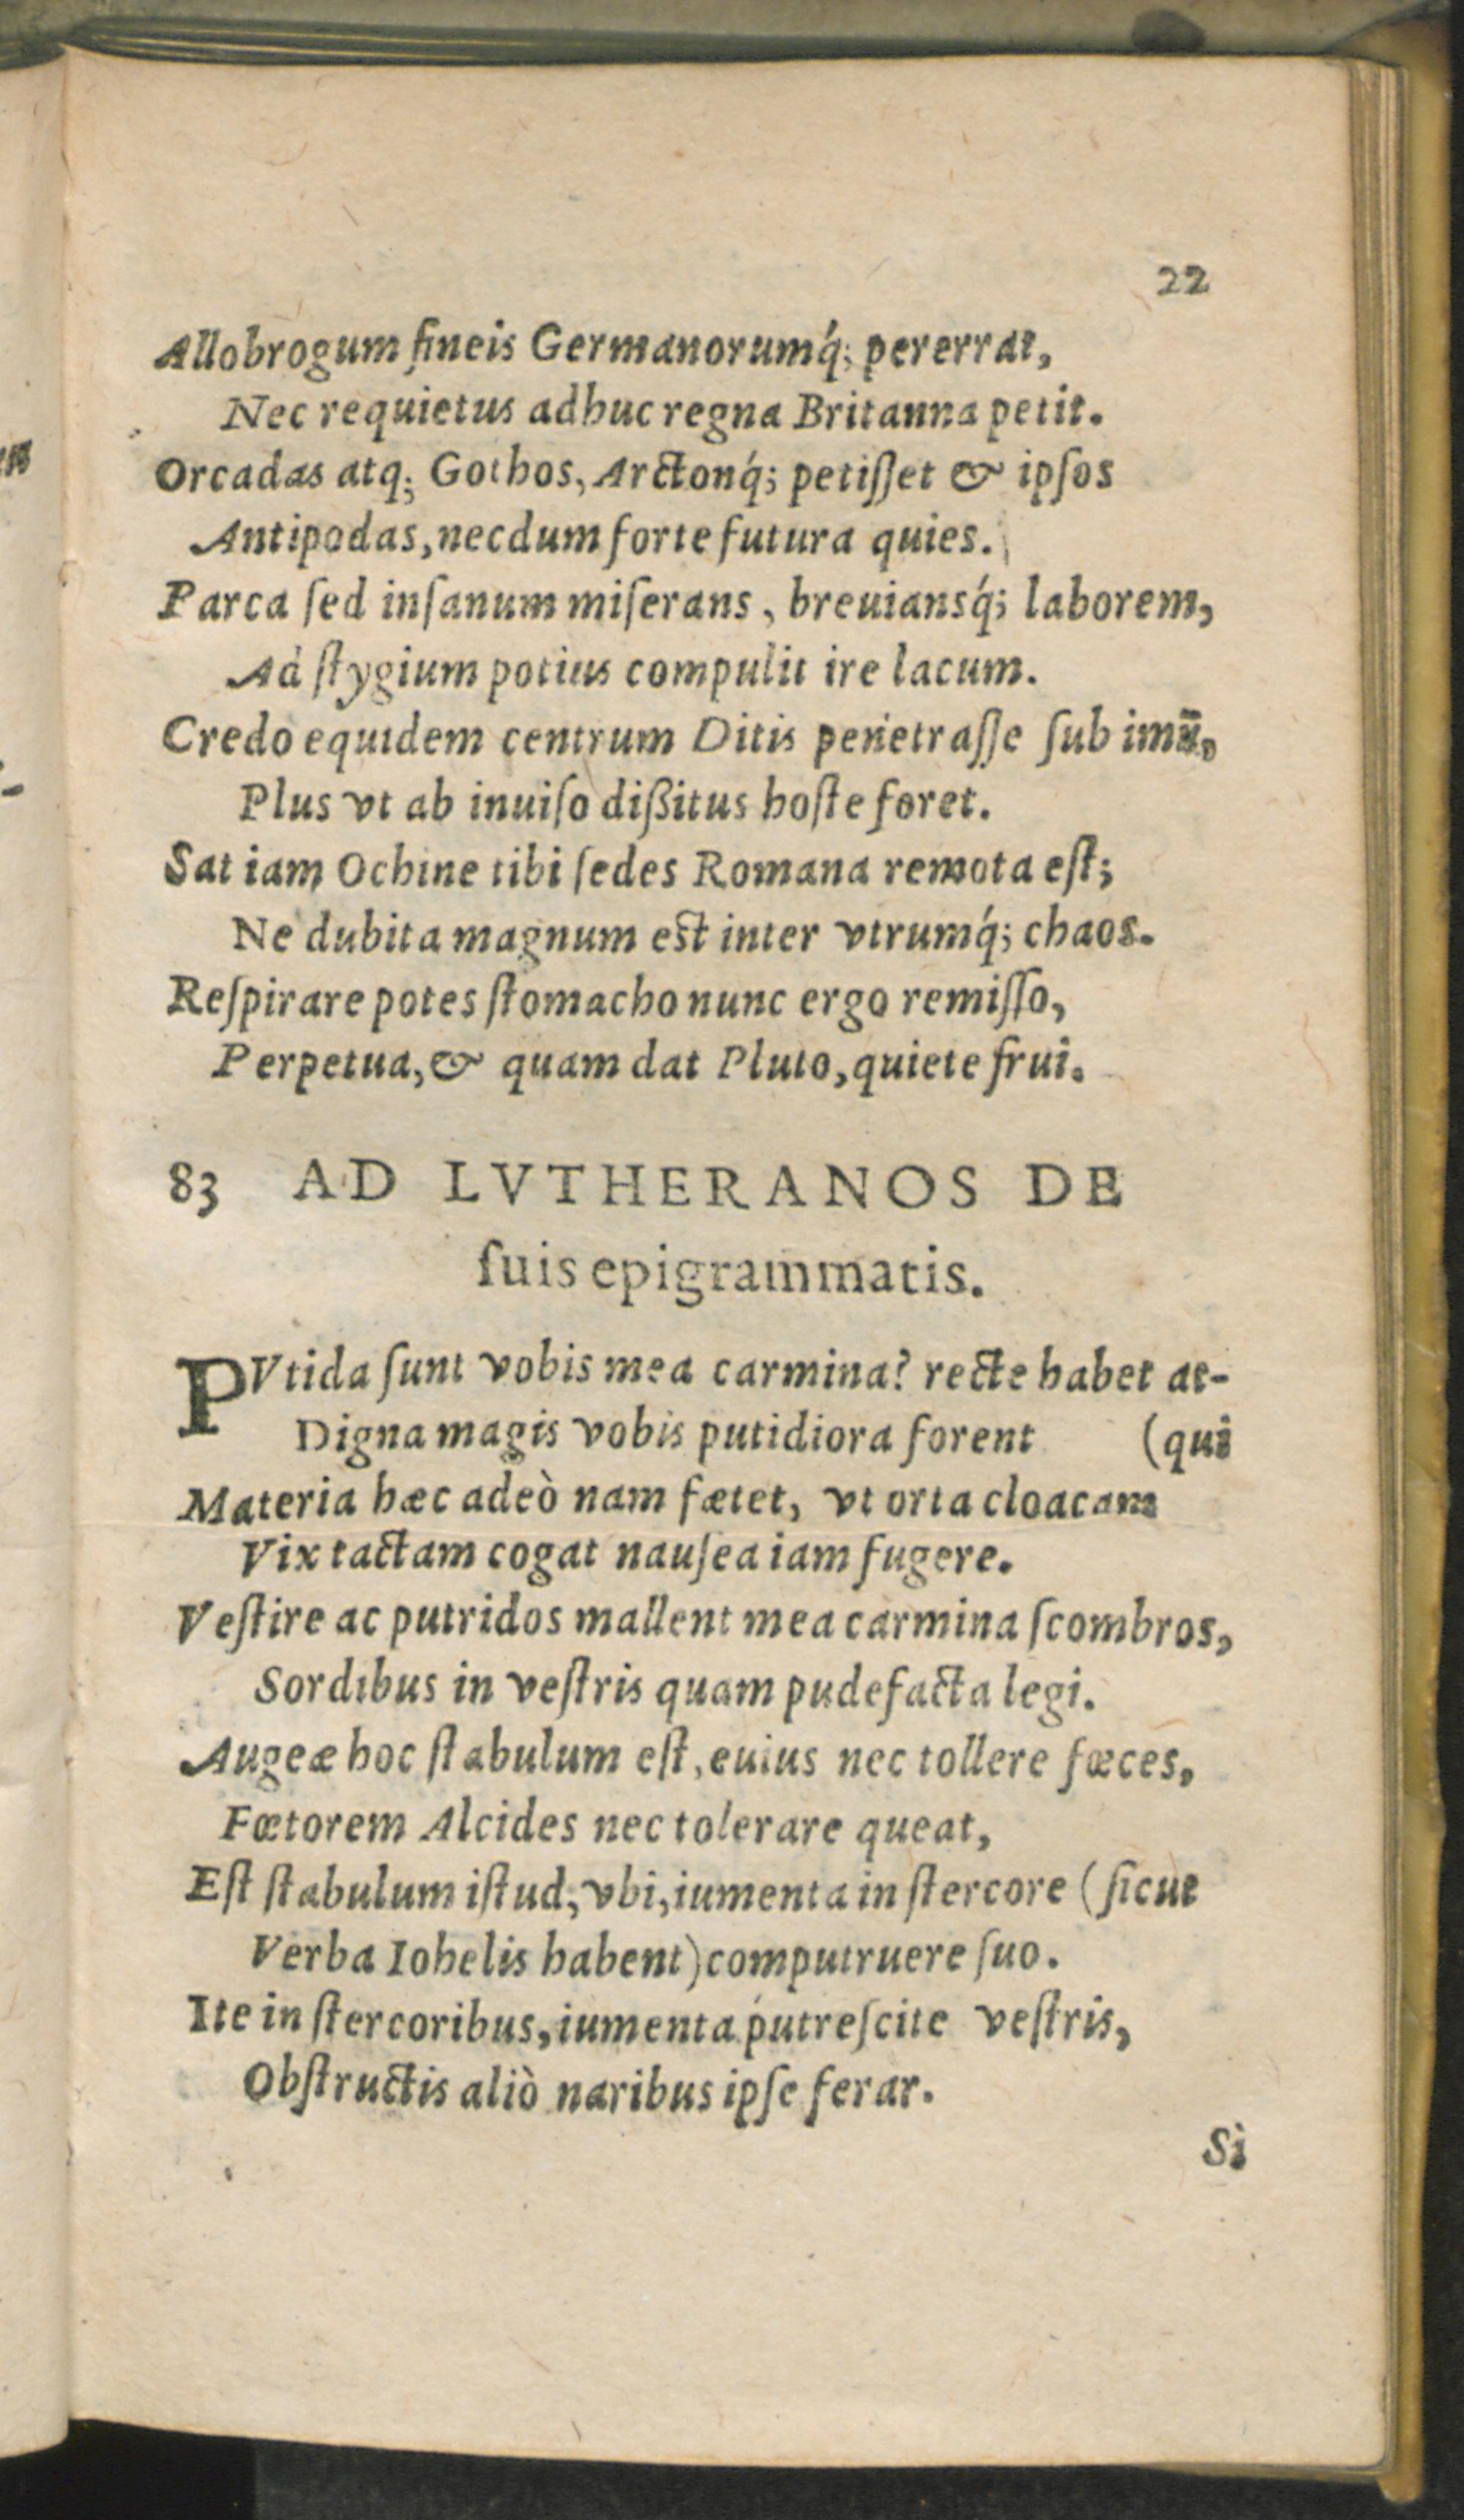 22
Allobrogum fineis Germanorumq́; pererrat,
Nec requietus adhuc regna Britanna petit.
Orcadas atq; Gothos, Arctonq́; petiſſet & ipſos
Antipodas, necdum forte futura quies.
Parca ſed inſanum miſerans, breuiansq́; laborem,
Ad ſtygium potius compulit ire lacum.
Credo equidem centrum Ditis penetraſſe ſub imū,
Plus vt ab inuiſo dißitus hoſte foret.
Sat iam Ochine tibi ſedes Romana remota eſt;
Ne dubita magnum est inter vtrumq́; chaos.
Reſpirare potes ſtomacho nunc ergo remiſſo,
Perpetua, & quam dat Pluto, quiete frui.
83 AD LVTHERANOS DE
ſuis epigrammatis.
PVtida ſunt vobis mea carmina? recte habet at-
Digna magis vobis putidiora forent (qui
Materia hæc adeò nam fætet, vt orta cloacam
Vix tactam cogat nauſea iam fugere.
Veſtire ac putridos mallent mea carmina ſcombros,
Sordibus in veſtris quam pudefacta legi.
Augeæ hoc ſtabulum eſt, euius nec tollere fæces,
Fœtorem Alcides nec tolerare queat,
Eſt ſtabulum iſtud, vbi, iumenta in ſtercore (ſicut
Verba Iohelis habent) computruere ſuo.
Ite in ſtercoribus, iumenta putreſcite veſtris,
Obſtructis aliò naribus ipſe ferar.
Si